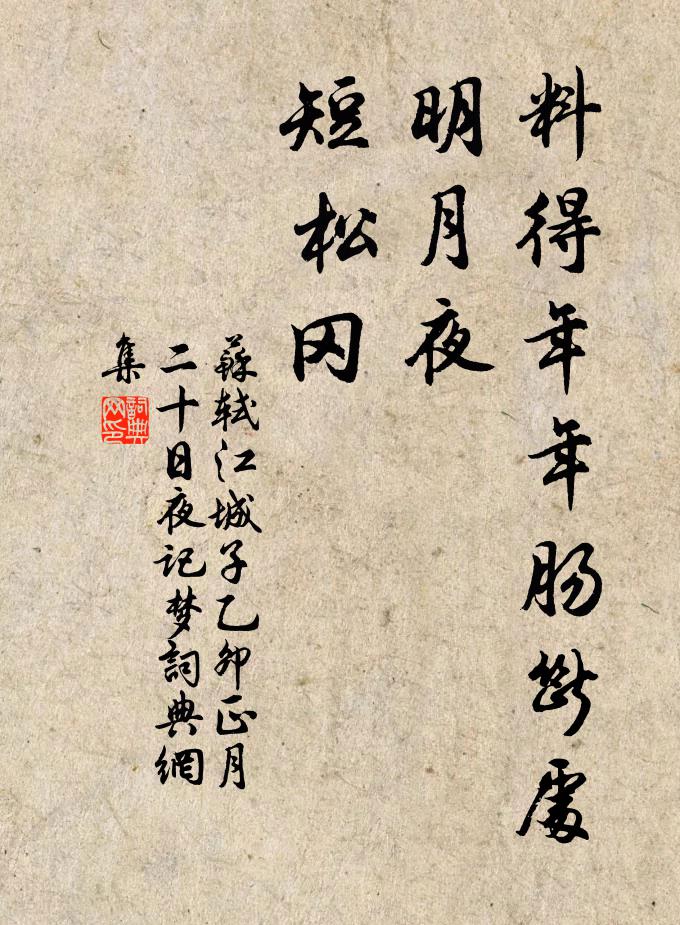 料得年年肠斷處
明月夜
短松冈
蘇軾江城子乙卯正月
二十日夜记梦詞典網
集
詞典
网印